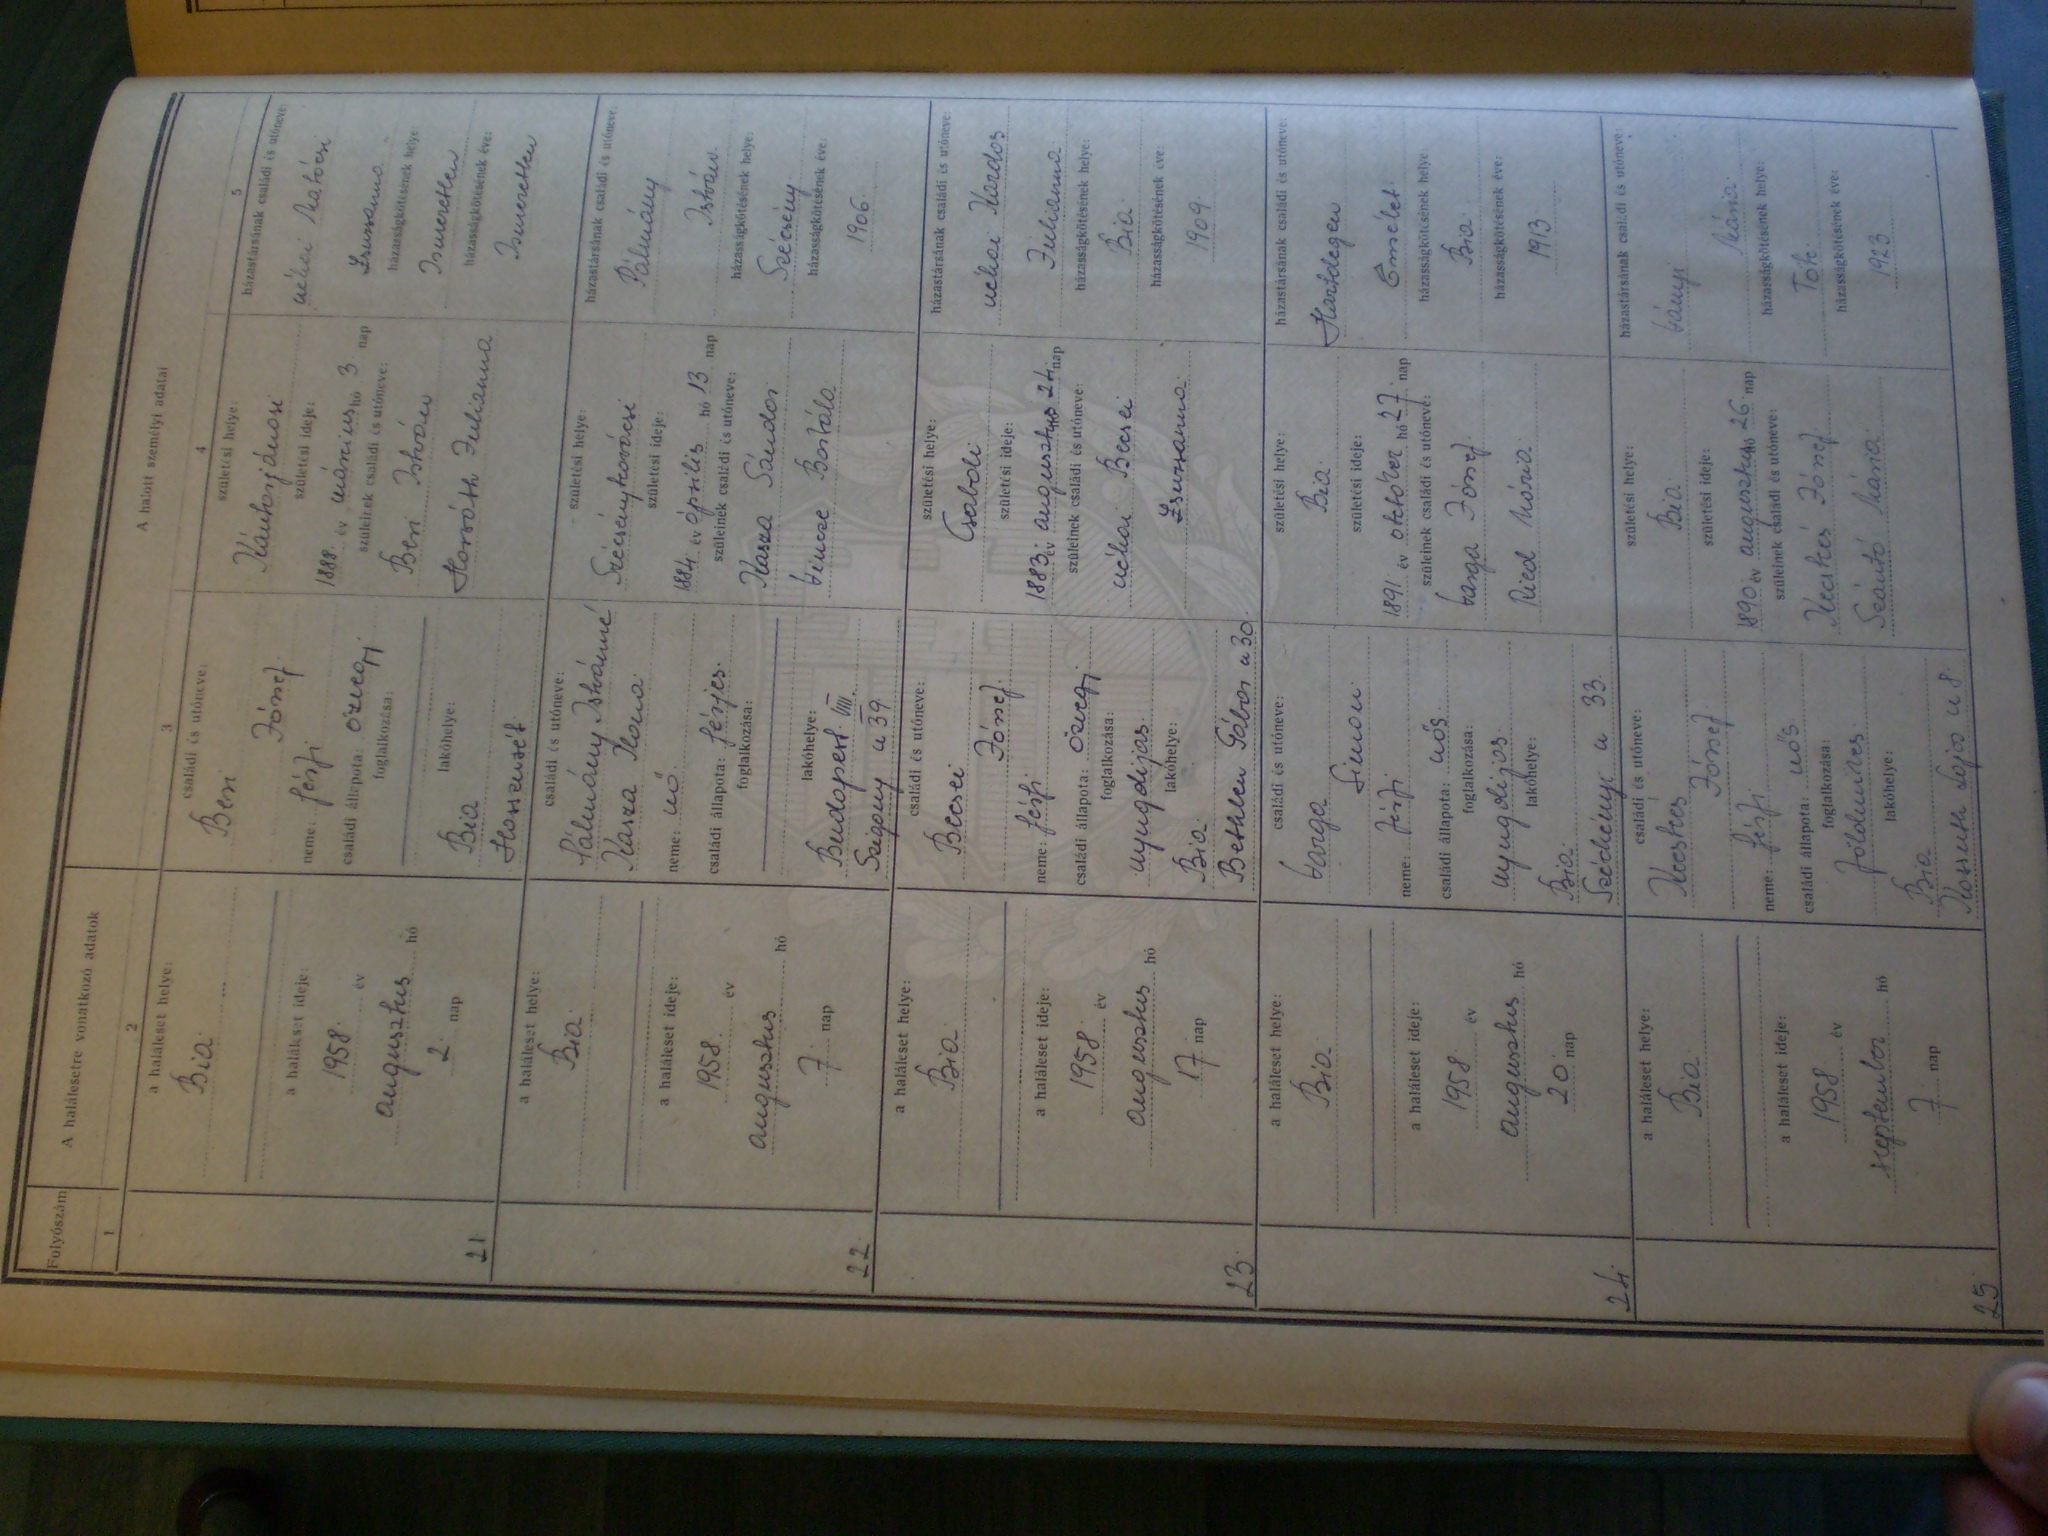 Folyószám
A halálesetre vonatkozó adatok
A halott személyi adatai
1
2
3
4
5
a haláleset helye:
Bia.
a haláleset ideje:
1958. év
augusztus hó
2. nap
21
családi és utóneve:
Beri
József.
neme: férfi
családi állapota: özvegy
foglalkozása:
lakóhelye:
Bia
születési helye:
Kántorjánosi
születési ideje:
1888. év március hó 3 nap
szüleinek családi és utóneve:
Beri István
Horváth Julianna
házastársának családi és utóneve:
néhai
Zsuzsanna
házasságkötésének helye:
Ismeretlen
házasságkötésének éve:
Ismeretlen
a haláleset helye:
Bia.
a haláleset ideje:
1958. év
augusztus hó
7. nap
22.
családi és utóneve:
Pálmány Istvánné
Kasza Ilona.
neme: nő.
családi állapota: férjes.
foglalkozása:
lakóhelye:
Budapest VIII.
Szigony u 39.
születési helye:
Szécsénykovácsi
születési ideje:
1884. év április hó 13 nap
szüleinek családi és utóneve:
Kasza Sándor
Vincze Borbála
házastársának családi és utóneve:
Pálmány
István.
házasságkötésének helye:
Szécsény.
házasságkötésének éve:
1906.
a haláleset helye:
Bia.
a haláleset ideje:
1958. év
augusztus hó
17. nap
23.
családi és utóneve:
Becsei
József.
neme: férfi
családi állapota: özvegy.
foglalkozása:
nyugdíjas.
lakóhelye:
Bia.
Bethlen Gábor u 30.
születési helye:
Csabdi
születési ideje:
1883. év augusztus hó 24. nap
szüleinek családi és utóneve:
néhai Becsei
Zsuzsanna.
házastársának családi és utóneve:
néhai Kardos
Julianna
házasságkötésének helye:
Bia.
házasságkötésének éve:
1909.
a haláleset helye:
Bia.
a haláleset ideje:
1958. év
augusztus hó
20. nap
24.
családi és utóneve:
Varga
Simon.
neme: férfi
családi állapota: nős.
foglalkozása:
nyugdíjas.
lakóhelye:
Bia.
Széchényi u 33.
születési helye:
Bia.
születési ideje:
1891. év október hó 27. nap
szüleinek családi és utóneve:
Varga József.
Ried Mária.
házastársának családi és utóneve:
Hartdegen
házasságkötésének helye:
Bia.
házasságkötésének éve:
1913.
a haláleset helye:
Bia.
a haláleset ideje:
1958. év
szeptember hó
7. nap
25.
családi és utóneve:
Kecskés
József.
neme: férfi
családi állapota: nős
foglalkozása:
földműves.
lakóhelye:
Bia
Kossuth Lajos u 8.
születési helye:
Bia.
születési ideje:
1890 év augusztus hó 26. nap
szüleinek családi és utóneve:
Kecskés József.
Szántó Mária.
házastársának családi és utóneve:
Ványi
Mária.
házasságkötésének helye:
Tök.
házasságkötésének éve:
1923